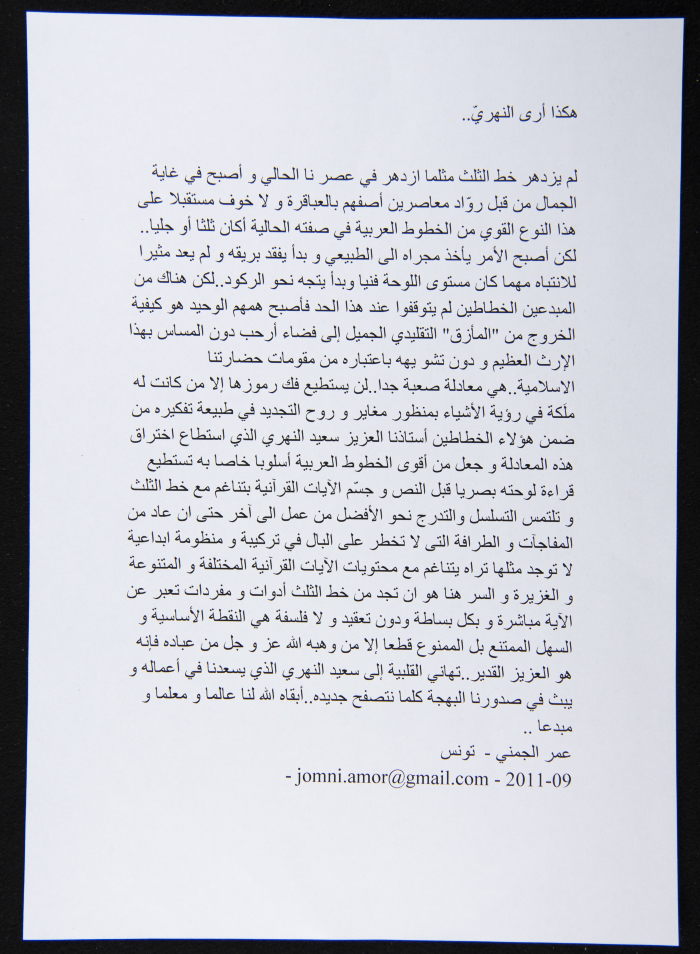 هكذا أرى النهريّ..
لم يزدهر خط الثلث مثلما ازدهر في عصر نا الحالي و أصبح في غاية
الجمال من قبل روّاد معاصرين أصفهم بالعباقرة و لا خوف مستقبلا على
هذا النوع القوي من الخطوط العربية في صفته الحالية أكان ثلثا أو جليا..
لكن أصبح الأمر يأخذ مجراه الى الطبيعي و بدأ يفقد بريقه و لم يعد مثيرا
للانتباه مهما كان مستوى اللوحة فنيا وبدأ يتجه نحو الركود..لكن هناك من
المبدعين الخطاطين لم يتوقفوا عند هذا الحد فأصبح همهم الوحيد هو كيفية
الخروج من "المأزق" التقليدي الجميل إلى فضاء أرحب دون المساس بهذا
الإرث العظيم و دون تشو يهه باعتباره من مقومات حضارتنا
الاسلامية..هي معادلة صعبة جدا..لن يستطيع فك رموزها إلا من كانت له
ملَكة في رؤية الأشياء بمنظور مغاير و روح التجديد في طبيعة تفكيره من
ضمن هؤلاء الخطاطين أستاذنا العزيز سعيد النهري الذي استطاع اختراق
هذه المعادلة و جعل من أقوى الخطوط العربية أسلوبا خاصا به تستطيع
قراءة لوحته بصريا قبل النص و جسّم الآيات القرآنية بتناغم مع خط الثلث
و تلتمس التسلسل والتدرج نحو الأفضل من عمل الى آخر حتى ان عاد من
المفاجآت و الطرافة التى لا تخطر على البال في تركيبة و منظومة ابداعية
لا توجد مثلها تراه يتناغم مع محتويات الآيات القرآنية المختلفة و المتنوعة
و الغزيرة و السر هنا هو ان تجد من خط الثلث أدوات و مفردات تعبر عن
الآية مباشرة و بكل بساطة ودون تعقيد و لا فلسفة هي النقطة الأساسية و
السهل الممتنع بل الممنوع قطعا إلا من وهبه الله عز و جل من عباده فإنه
هو العزيز القدير..تهاني القلبية إلى سعيد النهري الذي يسعدنا في أعماله و
يبث في صدورنا البهجة كلما نتصفح جديده..أبقاه الله لنا عالما و معلما و
مبدعا ..
عمر الجمني - تونس
- jomni.amor@gmail.com - 2011-09